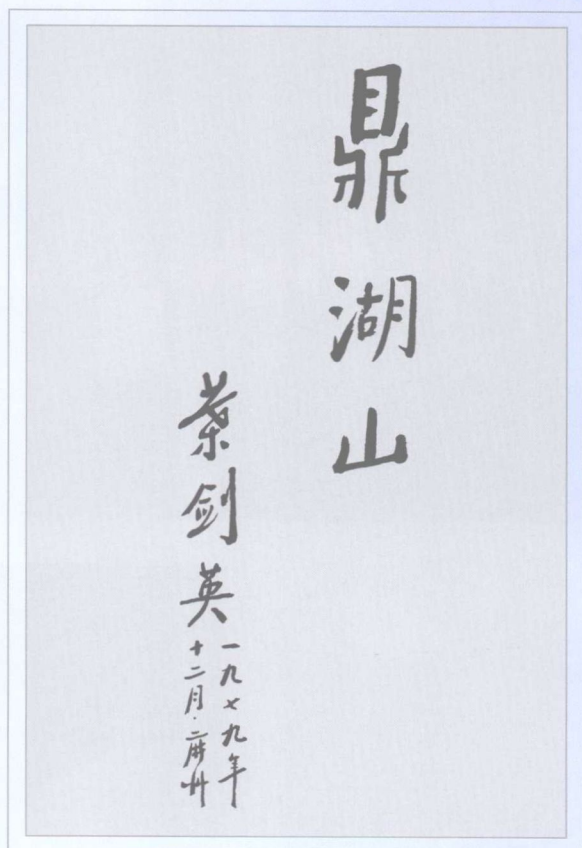 鼎湖山
葉剑英
一九七九年
十二月·州